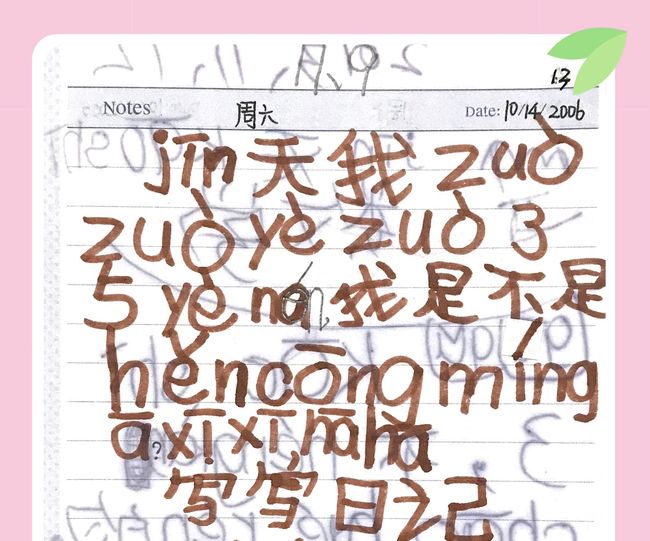 13
Notes 周六 Date: 10/14/2006
jīn天我zuò
zuò yè zuò 3
5 yè 我是不是
hěn cōng míng
ā? xī xī, hā hā
写写日记